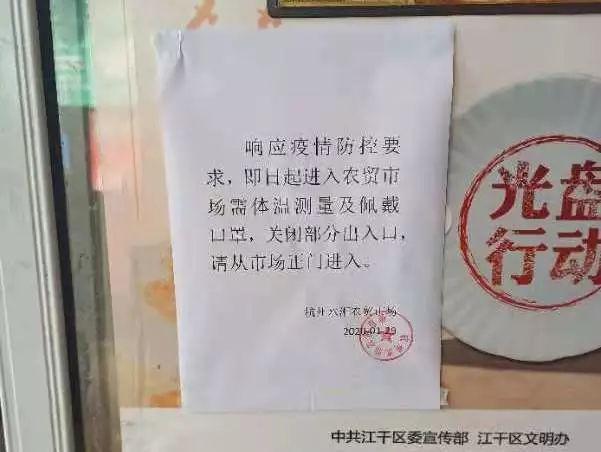 响应疫情防控要
求，即日起进入农贸市
场需体温测量及佩戴
口罩，关闭部分出入口，
请从市场正门进入。
农贸市场
2020-01-29
光盘
行动
中共江干区委宣传部 江干区文明办